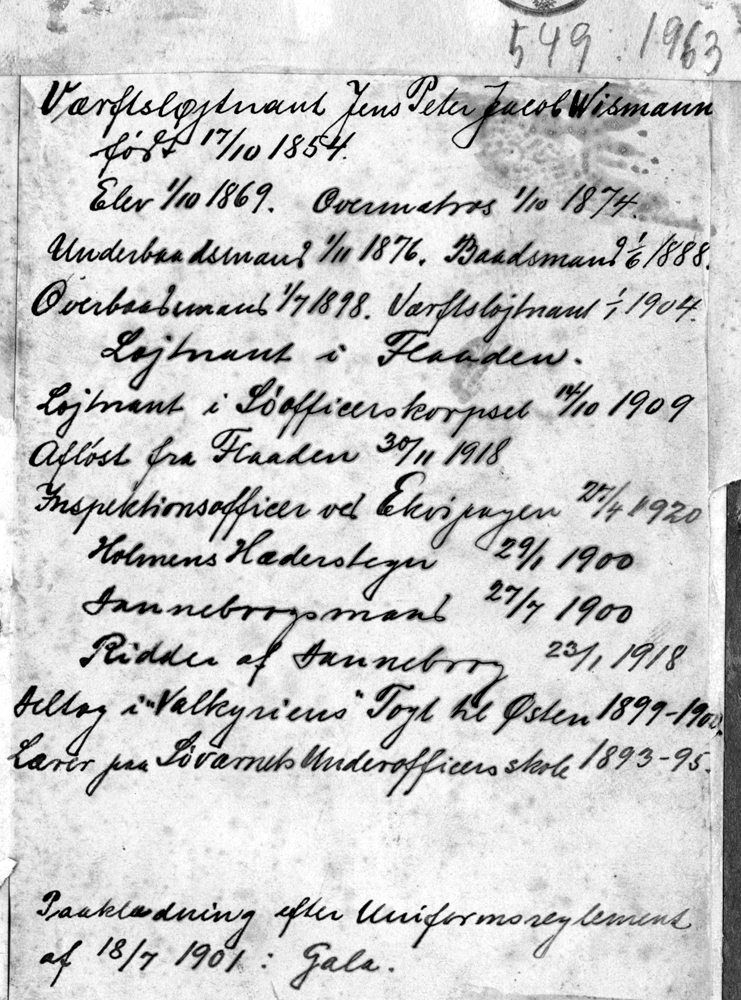 549 : 1963
Værftsløjtnant Jens Peter Jacob Wismann
født 17/10 1854.
Elev 1/10 1869. Overmatros 1/10 1874.
Underbaadsmand 1/11 1876. Baadsmand 1/6 1888.
Overbaadsmand 1/7 1898. Værftsløjtnant 1/1 1904.
Løjtnant i Flaaden.
Løjtnant i Søofficerskorpset 14/10 1909
Afløst fra Flaaden 30/11 1918
Inspektionsofficer ved Ekvipagen 27/4 1920
Holmens Hæderstegn 29/1 1900
Dannebrogsmand 27/7 1900
Ridder af Dannebrog 23/1 1918
Deltog i "Valkyriens" Togt til Østen 1899-1900.
Lærer paa Søværnets Underofficersskole 1893-95.
Paaklædning efter Uniformsreglement
af 18/7 1901: Gala.